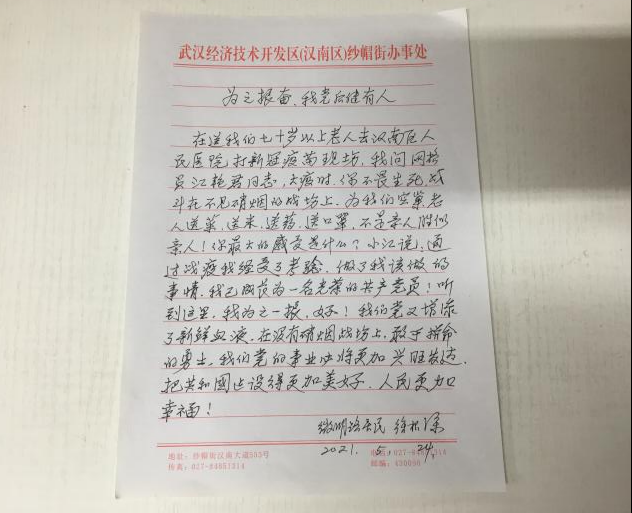 武汉经济技术开发区(汉南区)纱帽街办事处
为之振奋、我党后继有人
在送我们七十岁以上老人去汉南区人
民医院打新冠疫苗现场，我问网格
员江艳君同志，大疫时，你不畏生死，战
斗在不见硝烟的战场上，为我们空巢老
人送菜、送米、送药、送口罩，不是亲人胜似
亲人！你最大的感受是什么？小江说，通
过战疫我经受了考验，做了我该做的
事情，我已成员为一名光荣的共产党员！听
到这里，我为之一振，好！我们党又增添
了新鲜血液，在没有硝烟战场上，敢于拼命
的勇士，我们党的事业必将更加兴旺发达，
把共和國建设得更加美好，人民更加
幸福！
居民 徐
地址：纱帽街汉南大道553号
2021.5.24.
传真：027-84851314
邮编：430090